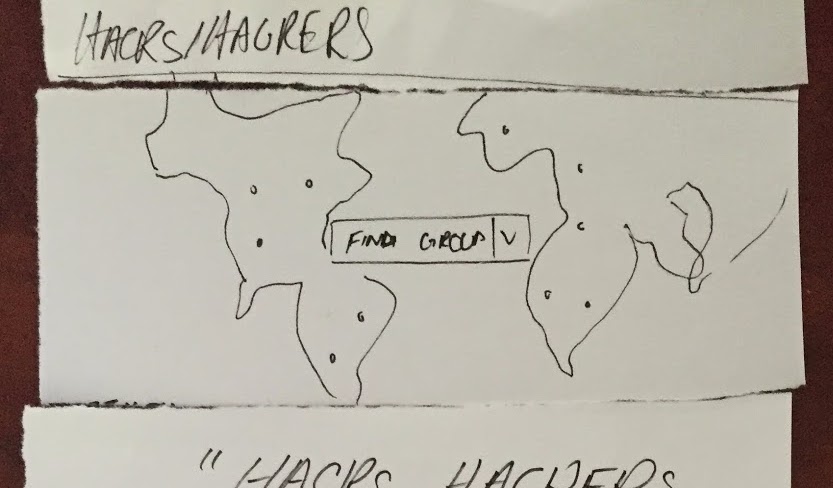 HACKS/HACKERS
FIND GROUP V
" HACKS HACKERS